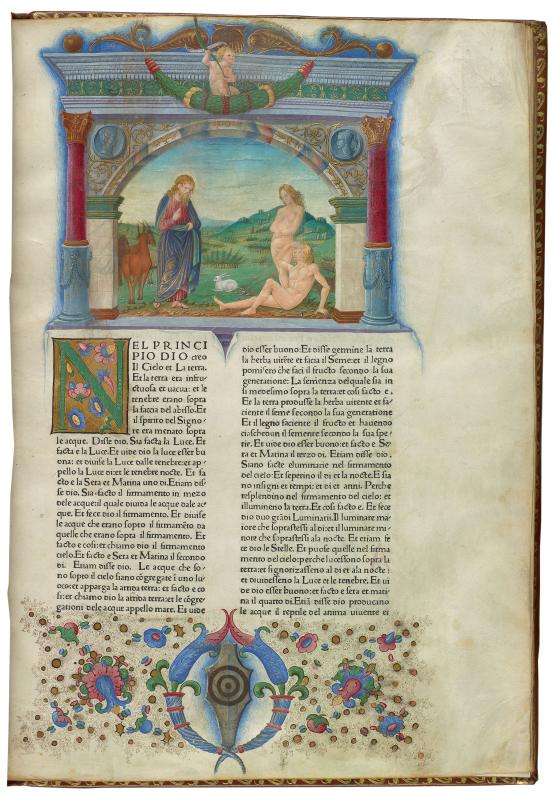 NEL PRINCI
PIO DIO creo
Il Cielo et La terra.
Et la terra era infru⸗
ctuosa et uacua: et le
tenebre erano sopra
la faccia del abisso. Et
il spirito del Signo⸗
re era menato sopra
le acque. Disse dio. Sia facta la Luce. Et
facta e la Luce. Et uide dio la luce esser bu
ona: et diuise la Luce dalle tenebre: et ap⸗
pello la Luce di: et le tenebre nocte. Et fa
cto e la Sera et Matina uno di. Etiam dis⸗
se dio. Sia facto il firmamento in mezo
dele acque: il quale diuida le acque dale ac⸗
que. Et fece dio il firmamento. Et diuise
le acque che erano sopto il firmamēto da
quelle che erano sopra il firmamento. Et
facto e cosi: et chiamo dio il firmamento
cielo. Et facto e Sera et Matina il secondo
di. Etiam disse dio. Le acque che so⸗
no sopto il cielo siano cōgregate ī uno lu⸗
oco: et apparga la arida terra: et facto e co
si: et chiamo dio la arida terra: et le cōgre⸗
gationi dele acque appello mare. Et uide
dio esser buono: Et disse germine la terra
la herba uirēte et facia il Seme: et il legno
pomifero che faci il fructo secondo la sua
generatione: La semenza del quale sia in
si medesimo sopra la terra: et cosi facto e.
Et la terra produsse la herba uirente et fa⸗
ciente il seme secondo la sua generatione
Et il legno faciente il fructo et hauendo
ciascheduno il semente secondo la sua spe⸗
tie. Et uide dio esser buono: et facto e Se⸗
ra et Matina il terzo di. Etiam disse dio.
Siano facte eluminarie nel firmamento
del cielo: Et sepertino il di et la nocte. E sia
no insigni et tempi: et di et anni. Perche
resplendino nel firmamento del cielo: et
illumineno la terra. Et cosi facto e. Et fece
dio duo grādi Luminarii. Il luminare ma⸗
iore che soprastessi al di: et il luminare mi⸗
nore che soprastessi ala nocte. Et etiam fe
ce dio le Stelle. Et puose quelle nel firma
mento del cielo: perche lucessono sopra la
terra: et signorizasseno al di et ala nocte:
et diuidesseno la Luce et le tenebre. Et ui
de dio esser buono: et facto e sera et mati⸗
na il quarto di. Etiā disse dio producano
le acque il reptile del anima uiuente et